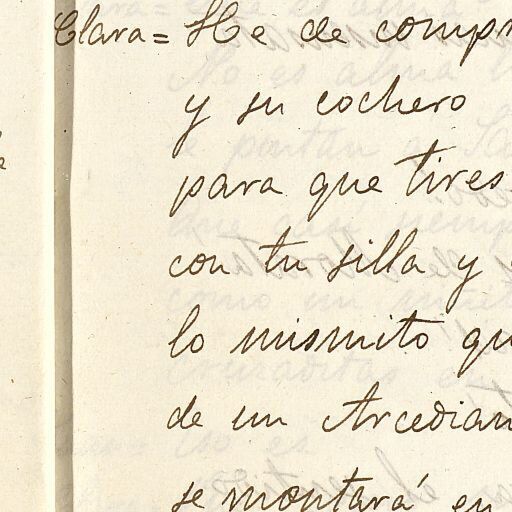 Clara = He de compr
y su cochero
para que tires
con tu silla y
lo mismito qu
de un Arcedian
se montará en